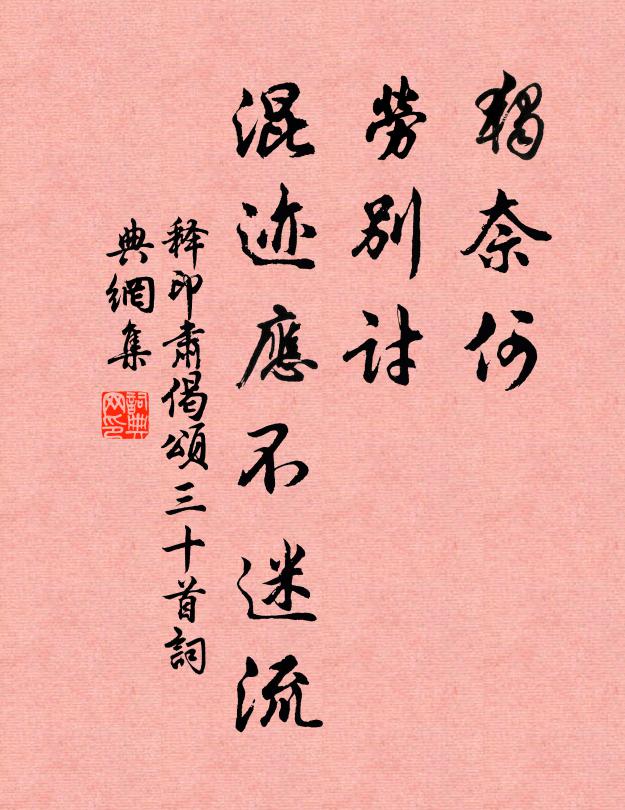 獨奈何
勞別討
混迹應不迷流
释印肅偈頌三十首詞
典網集
詞典网印